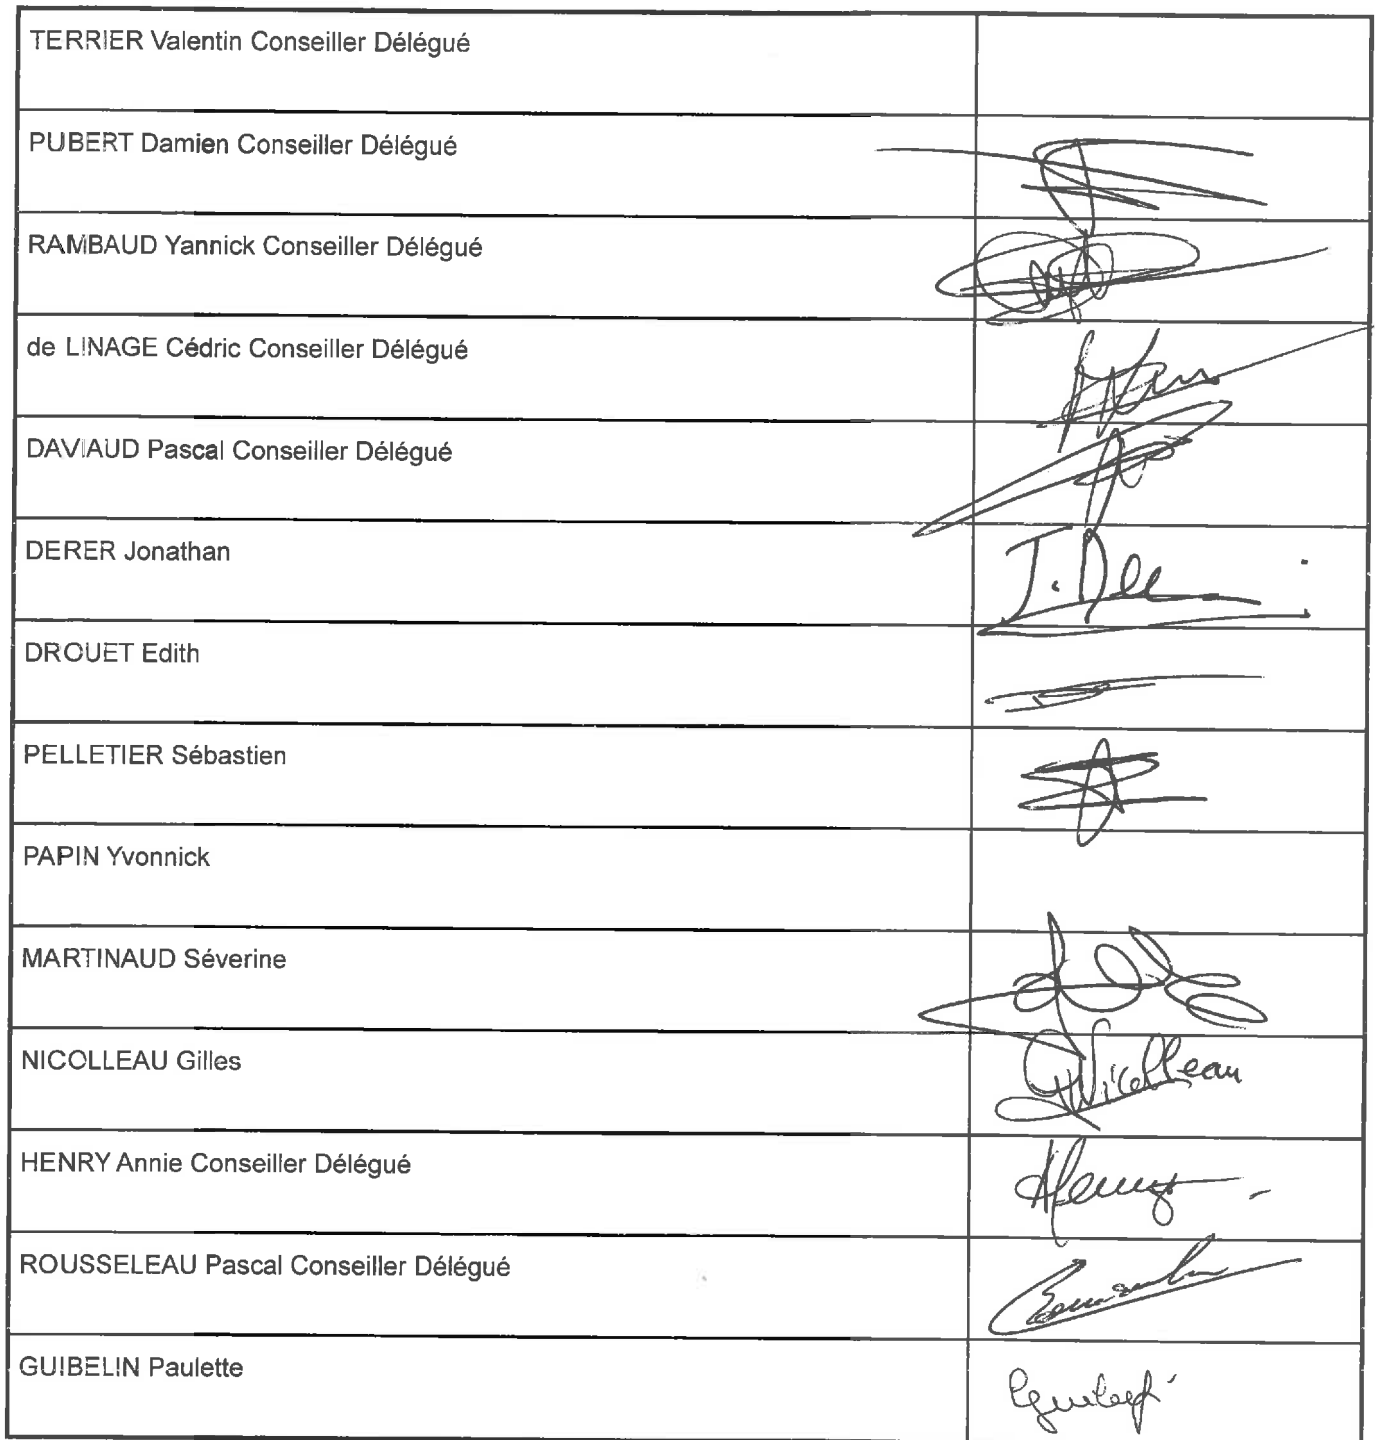 TERRIER Valentin Conseiller Délégué
PUBERT Damien Conseiller Délégué
RAMBAUD Yannick Conseiller Délégué
de LINAGE Cédric Conseiller Délégué
DAVIAUD Pascal Conseiller Délégué
DERER Jonathan
DROUET Edith
PELLETIER Sébastien
PAPIN Yvonnick
MARTINAUD Séverine
NICOLLEAU Gilles
Nicolleau
HENRY Annie Conseiller Délégué
Henry
ROUSSELEAU Pascal Conseiller Délégué
GUIBELIN Paulette